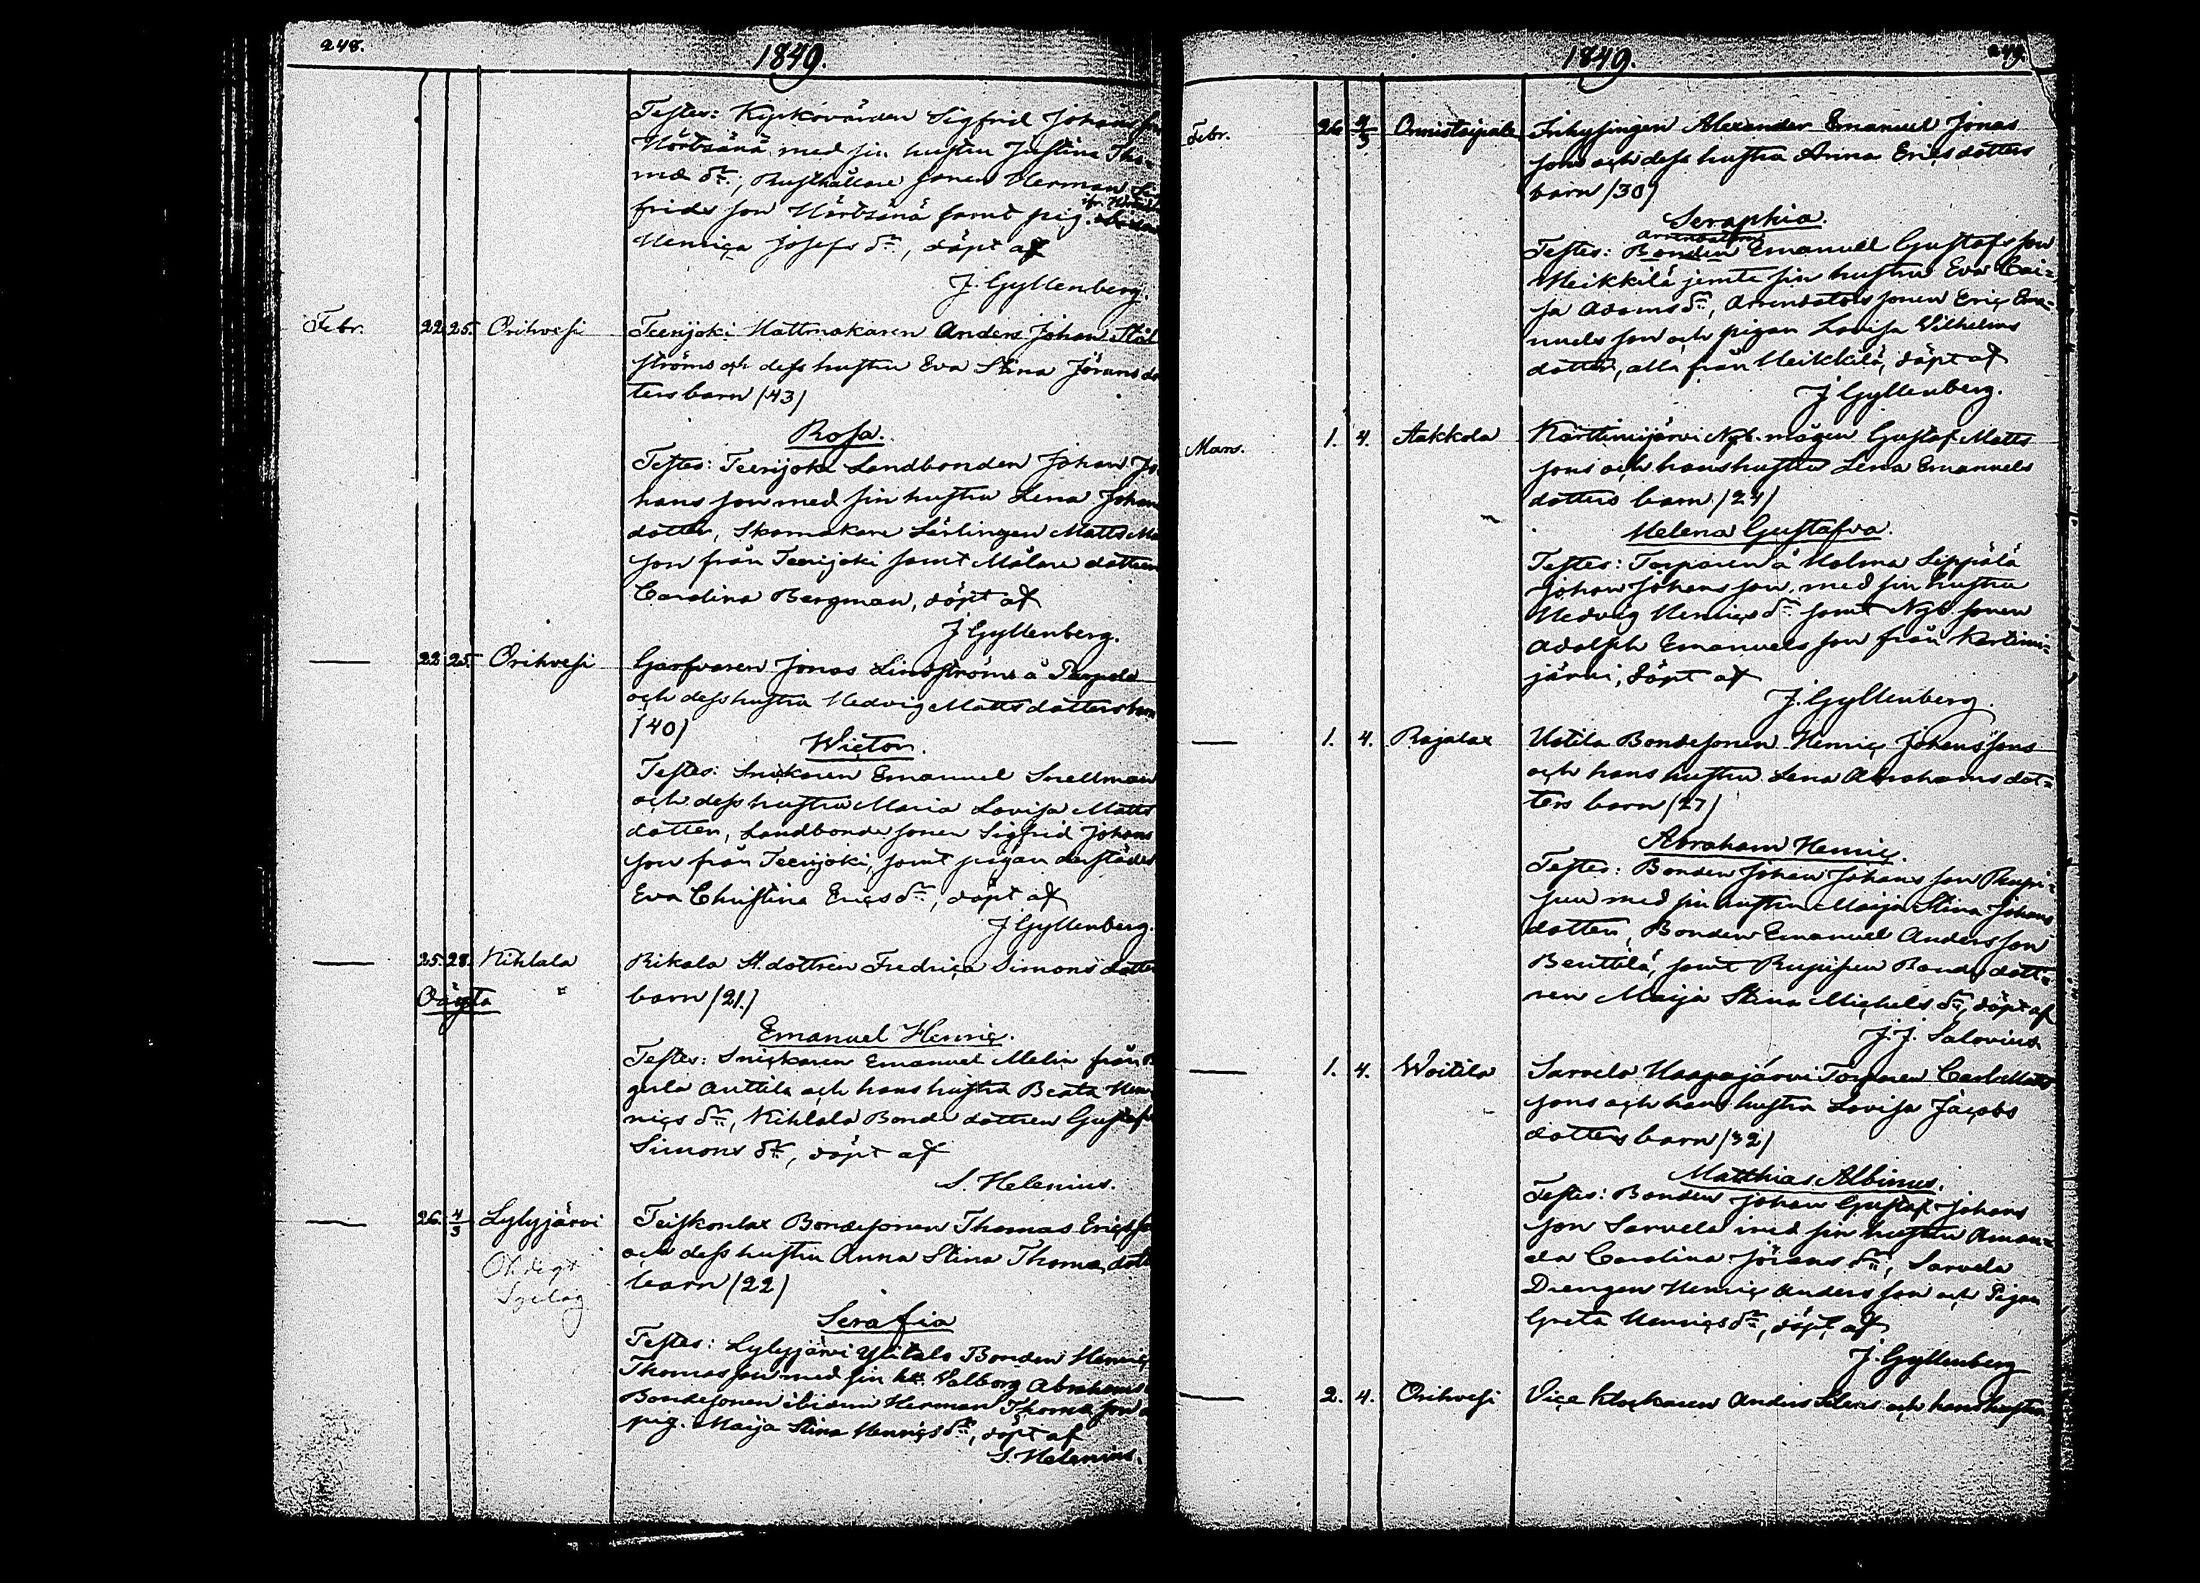 248.
1849.
Testes: Kyrkovärden Sigfrid Johans son
Hörtsänä med sin hustru Justina Tho-
mæ dr., Rusthållare sonen Herman Sig
frids son Hörtsänä samt pig.
Henrica Josefs dr., döpt af
J. Gyllenberg.
Febr. 22. 25. Orihvesi Teerijoki Hattmakaren Anders Johan Stål
ströms och dess hustru Eva Stina Jörans dot
ters barn (43)
Rosa.
Testes: Teerijoki Landbonden Johan Jo
hans son med sin hustru Lena Johans
dotter, Skomakare Lärlingen Matts Matts
son från Teerijoki samt Målare dottren
Carolina Bergman, döpt af
J Gyllenberg.
— 22 25. Orihvesi Garfvaren Jonas Lindströms å
och dess hustru Hedvig Matts dotters barn
(40)
Wictor.
Testes: Snickaren Emanuel Snellman
och dess hustru Maria Lovisa Matts
dotter, Landbonde sonen Sigfrid Johans
son från Teerijoki, samt pigan derstädes
Eva Christina Erics dr., döpt af
J Gyllenberg.
— 25. 28. Kihlala Rikala dottren Fredrica Simons dotters
Oägta barn (21.)
Emanuel Henric.
Testes: Snickaren Emanuel Melin från
gula Anttila och hans hustru Beata Hen
rics dr., Kihlala Bonde dottren Gustafva
Simons dr., döpt af
S. Helenius.
— 26. 4/3 Lylyjärvi Teiskonlax Bondesonen Thomas Erics son
och dess hustru Anna Stina Thomæ dott
barn (22)
Serafia
Testes: Lylyjärvi Ylitalo Bonden Henric
Thomas son med sin h. Valborg Abrahams
Bondesonen ibidem Herman Thomæ son o
pig. Maija Stina Henrics dr., döpt af
S. Helenius.
249.
1849.
Febr. 26 4/3 Onnistaipale Inhysingen Alexander Emanuel Jonas
sons och dess hustru Anna Erics dotters
barn (30)
Seraphia.
arrendatorn
Testes: Bonden Emanuel Gustafs son
Heikkilä jemte sin hustru Eva Cai=
sa Adams dr., Arrendators sonen Eric Ema=
nuels son och pigan Lovisa Vilhelms
dotter, alla från Heikkilä, döpt af
J Gyllenberg.
Mars. 1. 4. Aakkola Kärttimijärvi Nyb. mågen Gustaf Matts
sons och hans hustru Lena Emanuels
dotters barn (24)
Helena Gustafva.
Testes: Torparen å Holma Seppälä
Johan Johans son, med sin hustru
Hedvig Henrics dr. samt Nyb. sonen
Adolph Emanuels son från Kertimi=
järvi, döpt af
J. Gyllenberg.
— 1. 4. Rajalax Uotila Bondesonen Henric Johans sons
och hans hustru Lena Abrahams dot=
ters barn (27)
Abraham Henric.
Testes: Bonden Johan Johans son
med sin hustru Maija Stina Johans
dotter, Bonden Emanuel Anders son
Benttilä, samt Bonde dott=
ren Maija Stina Michels dr., döpt af
J. J. Salovius.
— 1. 4. Woitila Sarvela Haapajärvi Torparen Carl Matts
sons och hans hustru Lovisa Jacobs
dotters barn (32)
Matthias Albinus.
Testes: Bonden Johan Gustaf Johans
son Sarvela med sin hustru Aman=
da Carolina Jörans dr., Sarvela
Drengen Henric Anders son och Pigan
Greta Henrics dr., döpt af
J. Gyllenberg
— 2. 4. Orihvesi Vice Klockaren Anders och hans hustru